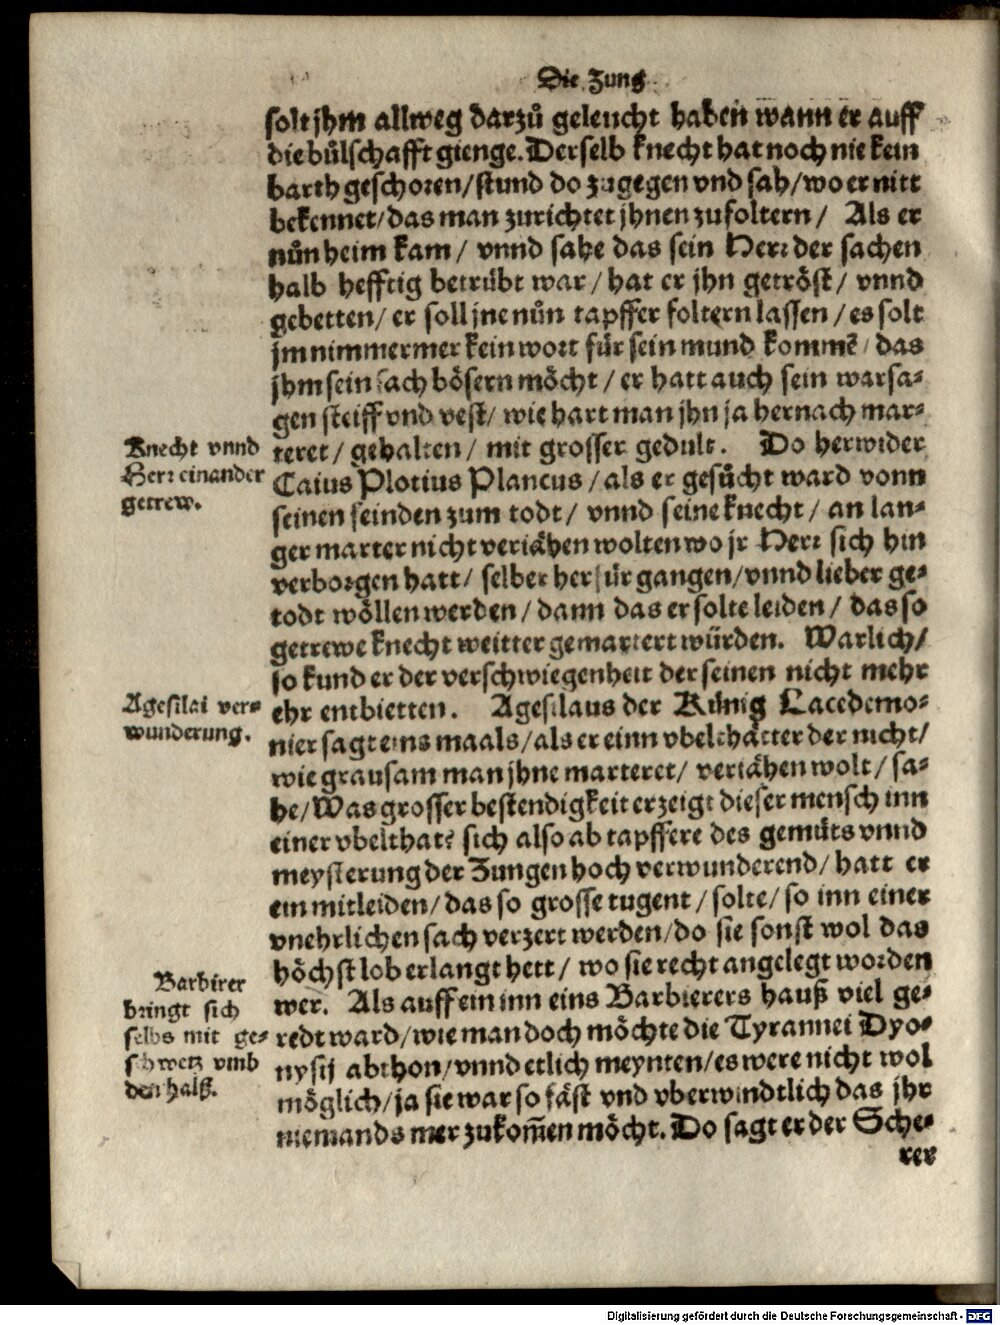 Die Zung
solt jhm allweg darzů geleucht haben wann er auff
die bůlschafft gienge. Derselb knecht hat noch nie kein
barth geschoren/stund do zugegen vnd sah/wo er nitt
bekennet/das man zurichtet jhnen zufoltern/ Als er
nůn heim kam/ vnnd sahe das sein Herr der sachen
halb hefftig betrübt war/hat er jhn getröst/ vnnd
gebetten/er soll jne nůn tapffer foltern lassen/es solt
jm nimmermer kein wort für sein mund kommẽ/das
jhm sein sach bösern möcht/er hatt auch sein warsa⸗
gen steiff vnd vest/wie hart man jhn ja hernach mar⸗
teret/gehalten/mit grosser gedult. Do herwider
Caius Plotius Plancus/als er gesůcht ward vonn
seinen feinden zum todt/vnnd seine knecht/an lan⸗
ger marter nicht veriähen wolten wo jr Herr sich hin
verborgen hatt/ selber herfür gangen/vnnd lieber ge⸗
todt wöllen werden/dann das er solte leiden/das so
getrewe knecht weitter gemartert würden. Warlich/
so kund er der verschwiegenheit der seinen nicht mehr
ehr entbietten. Agesilaus der Künig Lacedemo⸗
nier sagt eins maals/als er einn vbelthätter der nicht/
wie grausam man jhne marteret/ veriähen wolt/sa⸗
he/Was grosser bestendigkeit erzeigt dieser mensch inn
einer vbelthat? sich also ab tapffere des gemüts vnnd
meysterung der Zungen hoch verwunderend/hatt er
ein mitleiden/das so grosse tugent/solte/so inn einer
vnehrlichen sach verzert werden/do sie sonst wol das
höchst lob erlangt hett/wo sie recht angelegt worden
wer. Als auff ein inn eins Barbierers hauß viel ge⸗
redt ward/wie man doch möchte die Tyrannei Dyo⸗
nysij abthon/vnnd etlich meynten/es were nicht wol
möglich/ja sie war so fäst vnd vberwindtlich das jhr
niemands mer zukom̃en möcht. Do sagt er der Sche⸗
rer
Knecht vnnd
Herr einander
getrew.
Agesilai ver⸗
wunderung.
Barbirer
bringt sich
selbs mit ge⸗
schwetz vmb
den halß.
Digitalisierung gefördert durch die Deutsche Forschungsgemeinschaft - DFG